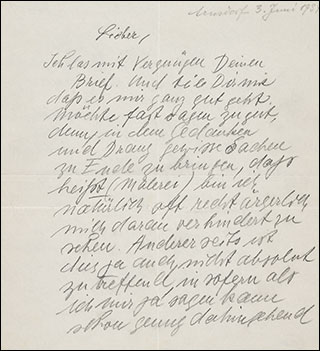 3. Juni 193
Lieber,
Ich las mit Vergnügen Deinen
Brief. Und teile Dir mit
daß es mir ganz gut geht
möchte fast sagen zu gut,
denn in dem Gedanken
und Drang gewisse Sachen
zu Ende zu bringen, daß
heißt (Malerei) bin ich
natürlich oft recht ärgerlich
mich daran verhindert zu
sehen. Anderer seits ist
dies ja auch nicht absolut
zu treffend in sofern als
ich mir ja sagen kann
schon genug dahingehend